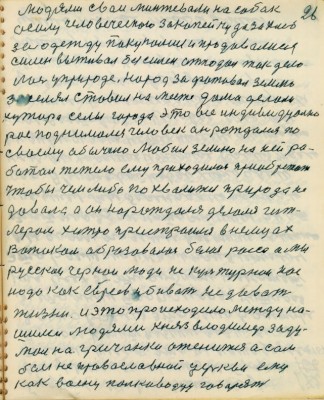 26
людями свои митевали на собак
силу человеческого закопейку да за хлеб
за одежду покупали и продавалися
силен выживал бессилен отходил так дело
в природе. Народ захватовал землю
заселял ставил на месте дома делал
хутора селы города это все индивидуально
рос поднимался человек он рождался по
своему обычаю любил землю на ней ра-
ботал тежело ему приходилося приобретать
чтобы чем либо похвалится природа не
давала а он нарождался делался гит-
лером хитро пристроился в немцах
образовалася белая раса а мы
русская черная люди не культурная нас
надо как евреев убивать не давать
жизни. и это происходило между на-
шими людями князь владимир заду-
мал на гричанки оженится а сам
был не православной церкви ему
как воену полководцу говорят